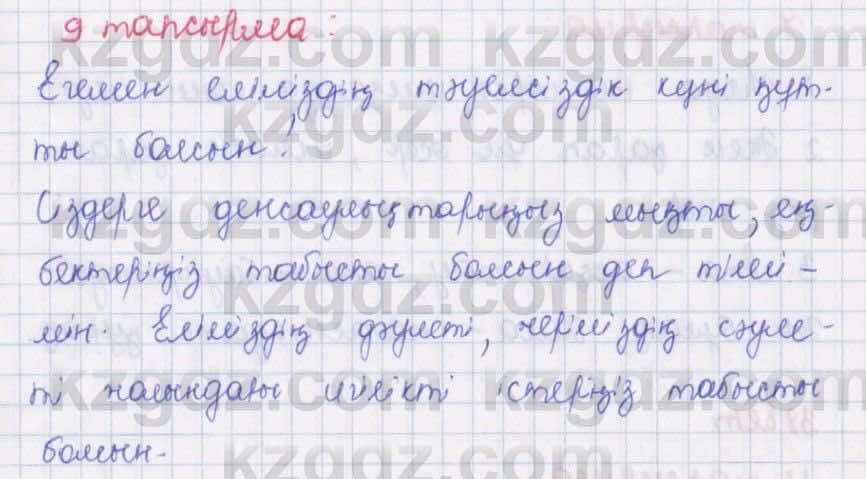 9 тапсырма:
Егемен еліміздің тәуелсіздік күні құт-
ты болсын!
Сіздерге денсаулықтарыңыз мықты, ең-
бектеріңіз табысты болсын деп тілей-
мін. Еліміздің дәулеті, жеріміздің сәуле-
ті жолындағы игілікті істеріңіз табысты
болсын.
kzgdz.com